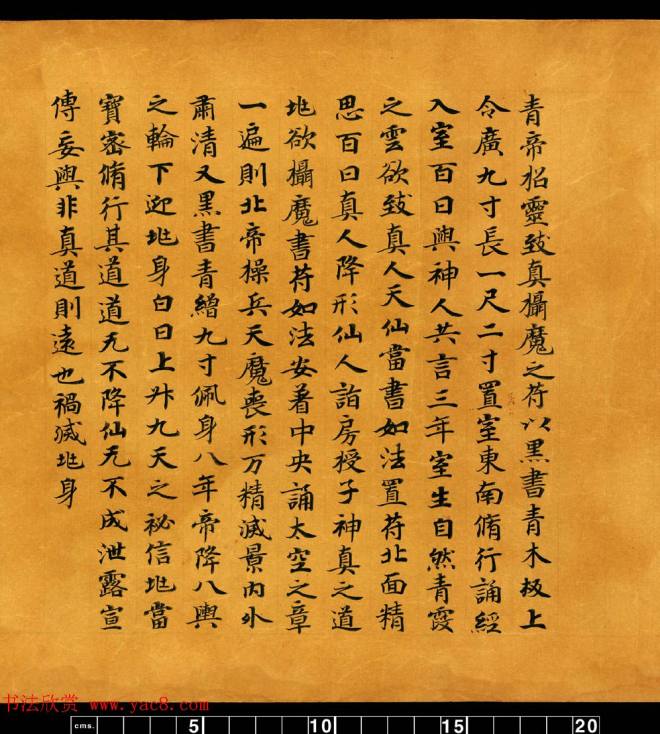 青帝招靈致真攝魔之苻以黒書青木板上
令廣九寸長一尺二寸置室東南脩行誦經
入室百日與神人共言三年室生自然青霞
之雲欲致真人天仙當書如法置苻北面精
思百日真人降形仙人詣房授子神真之道
地欲攝魔書苻如法安著中央誦太空之章
一遍則北帝操兵天魔喪形万精滅景内外
肅清又黒書青繒九寸佩身八年帝降八輿
之輪下迎地身白日上升九天之祕信地當
寶密脩行其道道无不降仙无不成泄露宣
傳妄與非真道則遠也禍滅地身
书法欣赏 www.yac8.com
cms. 5 10 15 20